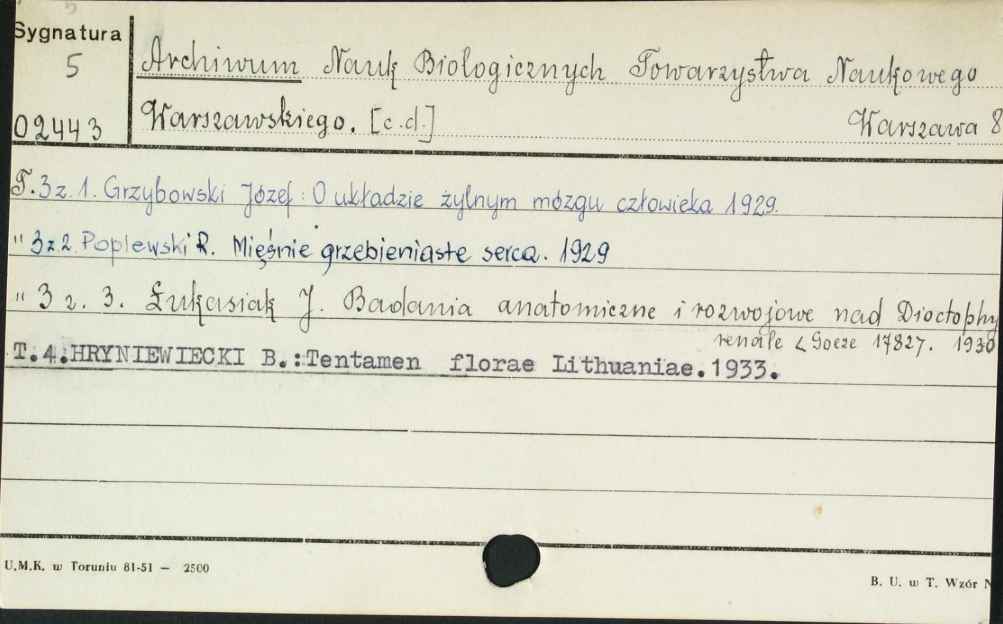 Sygnatura
5
02443
Archiwum Nauk Biologicznych Towarzystwa Naukowego
Warszawskiego. [c.d.] Warszawa 8
T. 3 z. 1. Grzybowski Józef: O układzie żylnym mózgu człowieka 1929.
" 3 z. 2. Poplewski R. Mięśnie grzebieniaste serca. 1929
" 3 z. 3. Łukasiak J. Badania anatomiczne i rozwojowe nad Dioctophy
renale < Goeze 1782 7. 1930
T.4.HRYNIEWIECKI B.:Tentamen florae Lithuaniae.1933.
U.M.K. w Toruniu 81-51 — 2500
B. U. w T. Wzór N